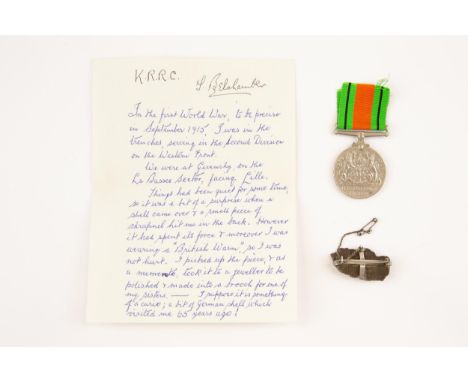 K.R.R.C.
In the first World War, to be precise
in September 1915, I was in the
trenches, serving in the Second Division
on the Western Front.
We were at Givenchy, on the
La Bassee Sector, facing Lille.
Things had been quiet for some time,
so it was a bit of a surprise when a
shell came over & a small piece of
shrapnel hit me in the back. However
it had spent its force & moreover I was
wearing a "British Warm", so I was
not hurt. I picked up the piece, & as
a memento took it to a jeweller to be
polished & made into a brooch for one of
my sisters — I suppose it is something
of a curio; a bit of German shell which
visited me 65 years ago!